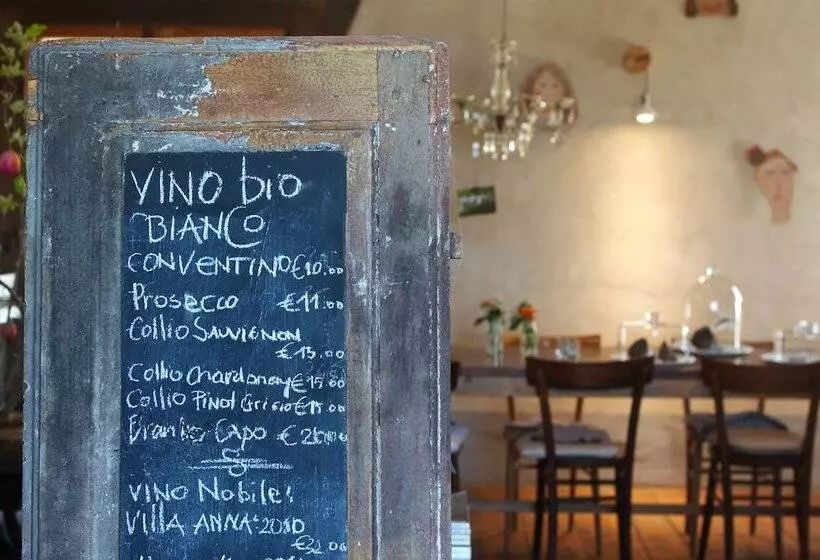 VINO bio
BIANCO
CONVENTINO €10.00
Prosecco €11.00
Collio SAUVIGNON
€15.00
Collio Chardonnay €15.00
Collio Pinot Grigio €15.00
Capo
VINO Nobile!
Villa ANNA 2010